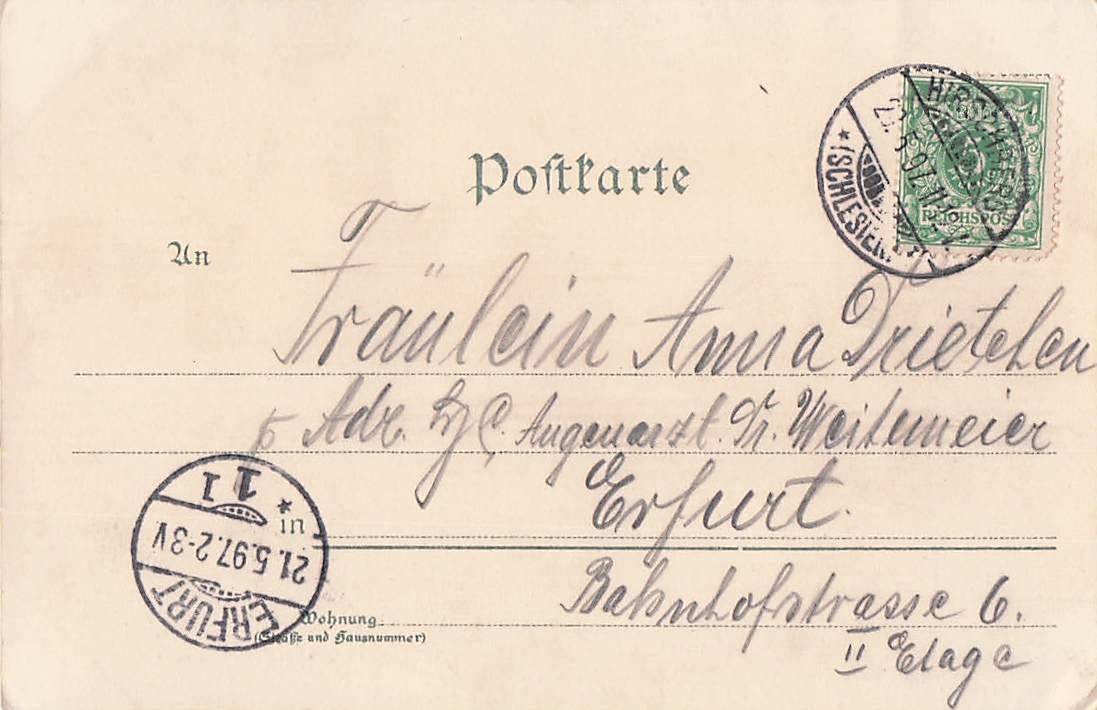 Postkarte
HIRSCHBERG
(SCHLESIEN)
5.97.
REICHSPOST
An
Fräulein Anna
Adr. Augenarzt. Dr. Weitemeier
Erfurt.
in
Bahnhofstrasse 6.
II Etage
Wohnung
(Straße und Hausnummer)
ERFURT
21.5.97.2-3V
1 I